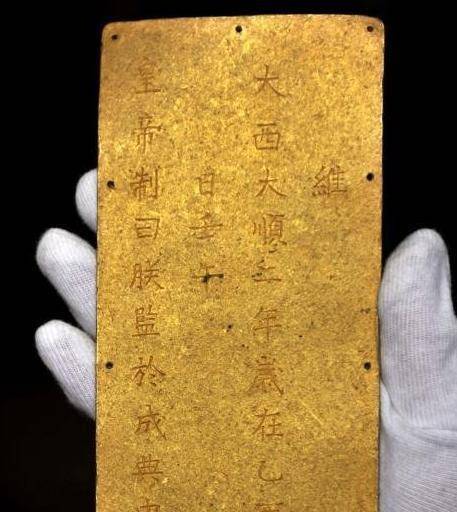 維
大西大順二年歲在乙
日壬午
皇帝制曰朕監於成典